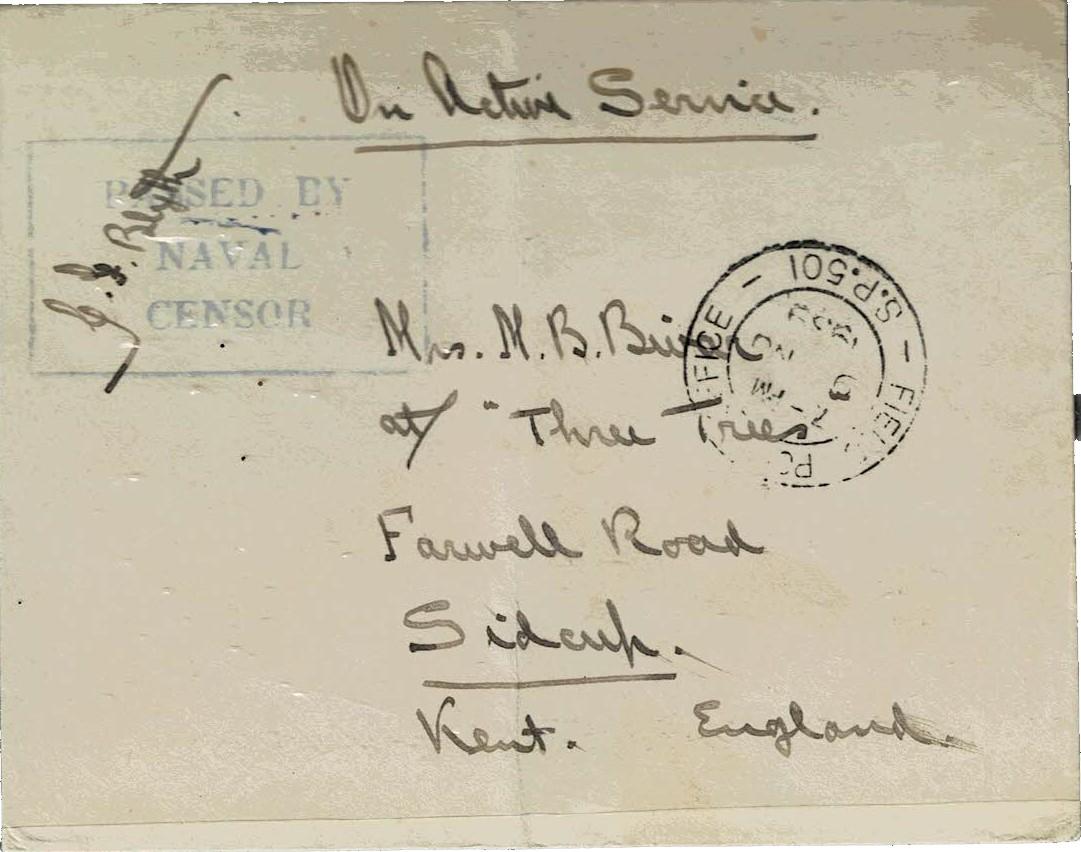 On Active Service.
PASSED BY
NAVAL
CENSOR
Mrs. M. B.
at "Three Trees
Farwell Road
Sidcup.
Kent. England.
FIELD POST OFFICE
S.P.501